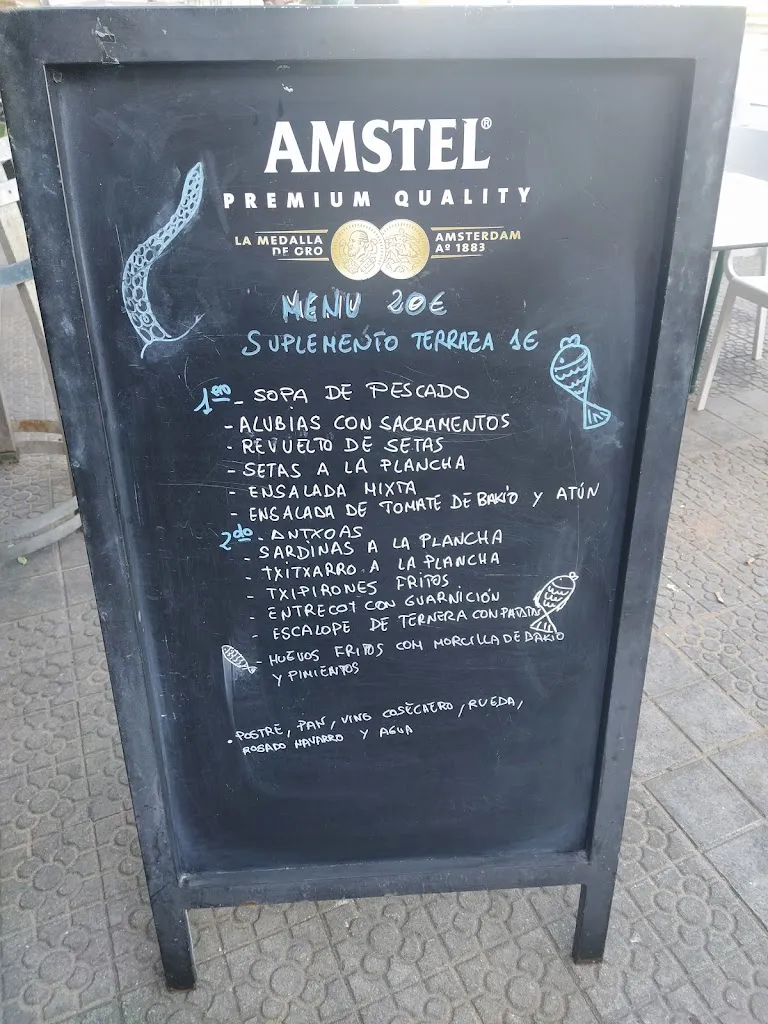 AMSTEL®
PREMIUM QUALITY
LA MEDALLA DE ORO
AMSTERDAM Aº 1883
MENU 20€
SUPLEMENTO TERRAZA 1€
1ero - SOPA DE PESCADO
- ALUBIAS CON SACRAMENTOS
- REVUELTO DE SETAS
- SETAS A LA PLANCHA
- ENSALADA MIXTA
- ENSALADA DE TOMATE DE BAKIO Y ATÚN
2do - ANTXOAS
- SARDINAS A LA PLANCHA
- TXITXARRO A LA PLANCHA
- TXIPIRONES FRITOS
- ENTRECOT CON GUARNICIÓN
- ESCALOPE DE TERNERA CON PATATAS
- HUEVOS FRITOS CON MORCILLA DE BAKIO
Y PIMIENTOS
• POSTRE, PAN, VINO COSECHERO, RUEDA,
ROSADO NAVARRO Y AGUA